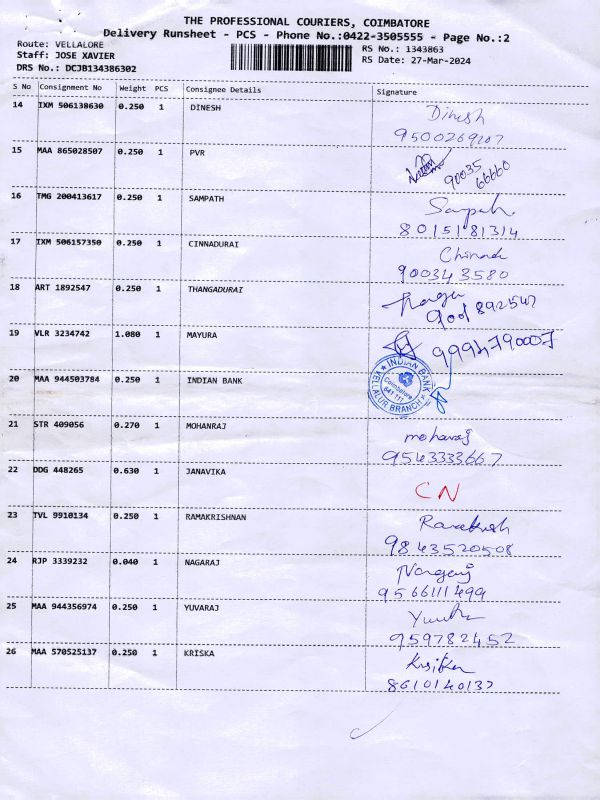 THE PROFESSIONAL COURIERS, COIMBATORE
Delivery Runsheet - PCS - Phone No.:0422-3505555 - Page No.:2
Route: VELLALORE RS No.: 1343863
Staff: JOSE XAVIER RS Date: 27-Mar-2024
DRS No.: DCJB134386302
S No Consignment No Weight PCS Consignee Details Signature
14 IXM 506138630 0.250 1 DINESH Dinesh
15 MAA 865028507 0.250 1 PVR 90035
66660
16 TMG 200413617 0.250 1 SAMPATH Sampath
8015181314
17 IXM 506157350 0.250 1 CINNADURAI
900343580
18 ART 1892547 0.250 1 THANGADURAI
19 VLR 3234742 1.080 1 MAYURA 9994790007
20 MAA 944503784 0.250 1 INDIAN BANK INDIAN BANK
Coimbatore
641 111
VELLALUR BRANCH
21 STR 409056 0.270 1 MOHANRAJ mohanraj
9543333667
22 DDG 448265 0.630 1 JANAVIKA CN
23 TVL 9910134 0.250 1 RAMAKRISHNAN
9843520508
24 RJP 3339232 0.040 1 NAGARAJ Nagaraj
9566111499
25 MAA 944356974 0.250 1 YUVARAJ
959782452
26 MAA 570525137 0.250 1 KRISKA
8610140137